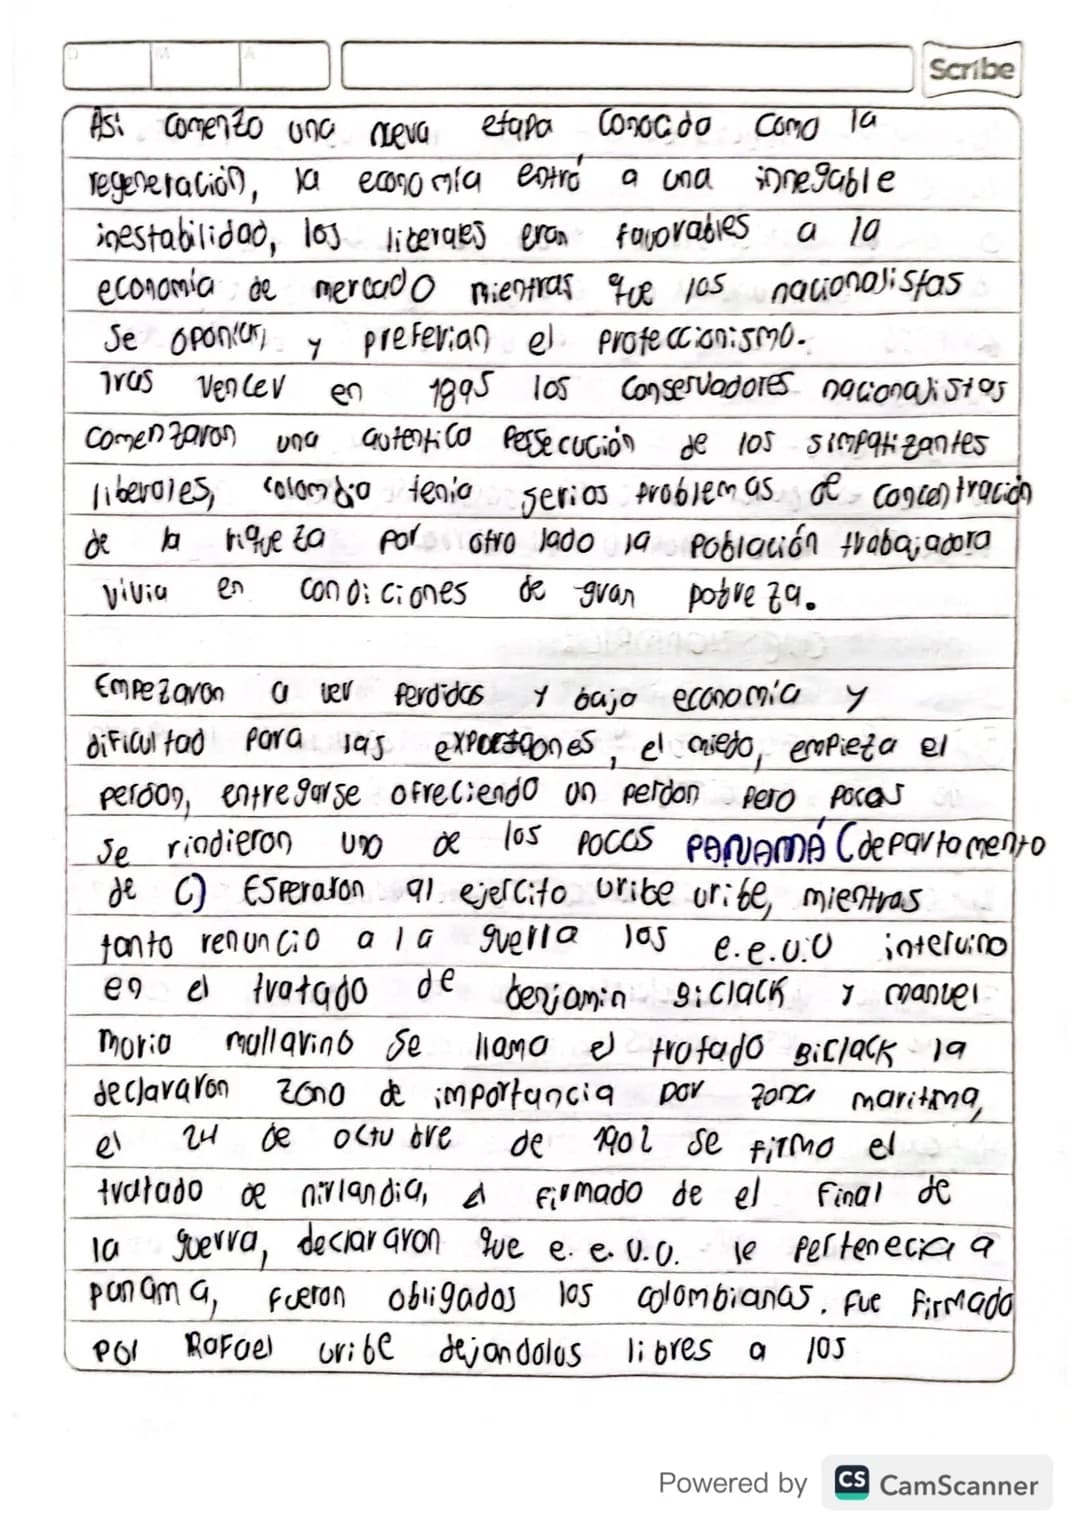 D M A
Scribe
Asi comenzo una nueva etapa conocido como la
regeneración, la economía entró a una innegable
inestabilidad, los liberales eran favorables a la
economía de mercado mientras que los nacionalistas
se oponian y preferian el proteccionismo.
Tras vencer en 1895 los conservadores nacionalistas
comenzaron una autentico persecución de los simpatizantes
liberales, colombia tenia serios problemas de concentración
de la riqueza por otro lado la población trabajadora
vivia en condiciones de gran pobreza.
Empezaron a ver perdidas y bajo economía y
dificultad para las , el miedo, empieza el
perdon, entregarse ofreciendo un perdon pero pocas
se rindieron uno de los pocos PANAMÁ (departamento
de C) Esperaron al ejercito uribe uribe, mientras
tanto renuncio a la guerra los e.e.U.U intervino
en el tratado de benjamin Biclack y manuel
maria mallarino se llama el tratado Biclack la
declararon zona de importancia por zona maritima,
el 24 de octubre de 1902 se firmo el
tratado de nirlandia, firmado de el final de
la guerra, declararon que e.e.U.U. le pertenecia a
panama, fueron obligados los colombianos. fue firmado
por Rafael uribe dejandolos libres a los
Powered by CS CamScanner